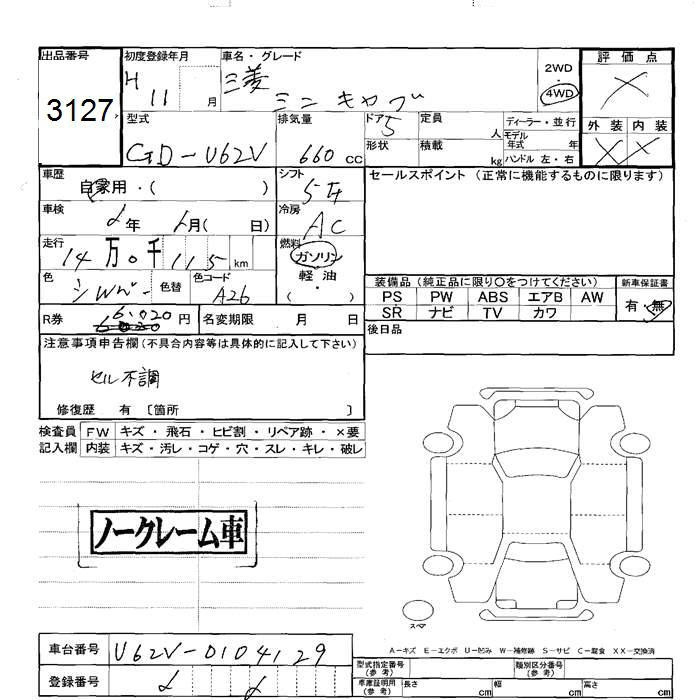 出品番号 初度登録年月 車名・グレード 評価点
3127 H 11 月 三菱 ミニキャブ 2WD 4WD
外装 内装
型式 排気量 ドア 定員 ディーラー・並行
GD-U62V 660 cc 5 人 モデル年式 年
形状 積載 kg ハンドル 左・右
車歴 シフト セールスポイント (正常に機能するものに限ります)
自家用・( )
車検 年 月( 日) 冷房 AC
走行 14万0千115km 燃料 ガソリン・軽油・( )
色 シルバー 色替 色コード A26
装備品 (純正品に限り○をつけてください) 新車保証書
PS PW ABS エアB AW 有・無
SR ナビ TV カワ
R券 6.020 円 名変期限 月 日
後日品
注意事項申告欄(不具合内容等は具体的に記入して下さい)
セル不調
修復歴 有 〔箇所 〕
検査員 FW キズ・飛石・ヒビ割・リペア跡・×要
記入欄 内装 キズ・汚レ・コゲ・穴・スレ・キレ・破レ
ノークレーム車
スペア
A−キズ E−エクボ U−凹み W−補修跡 S−サビ C−腐食 XX−交換済
車台番号 U62V-0104129
型式指定番号(参考) 類別区分番号(参考)
登録番号
車庫証明用(参考) 長さ cm 幅 cm 高さ cm